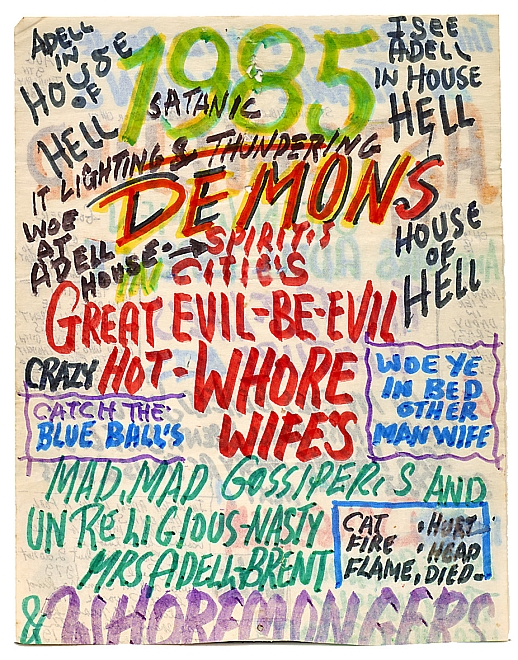 ADELL
IN
HOUSE
OF
HELL
1985
I SEE
ADELL
IN HOUSE
HELL
SATANIC
IT LIGHTING & THUNDERING
DEMONS
WOE
AT
ADELL
HOUSE.
SPIRIT'S
IN CITIE'S
HOUSE
OF
HELL
GREAT EVIL-BE-EVIL
CRAZY HOT-WHORE
WIFE'S
CATCH THE
BLUE BALL'S
WOE YE
IN BED
OTHER
MAN WIFE
MAD, MAD GOSSIPER'S AND
UNRELIGIOUS-NASTY
MRS ADELL-BRENT
CAT
FIRE
FLAME,
HURT
HEAD
DIED.
& WHOREMONGERS